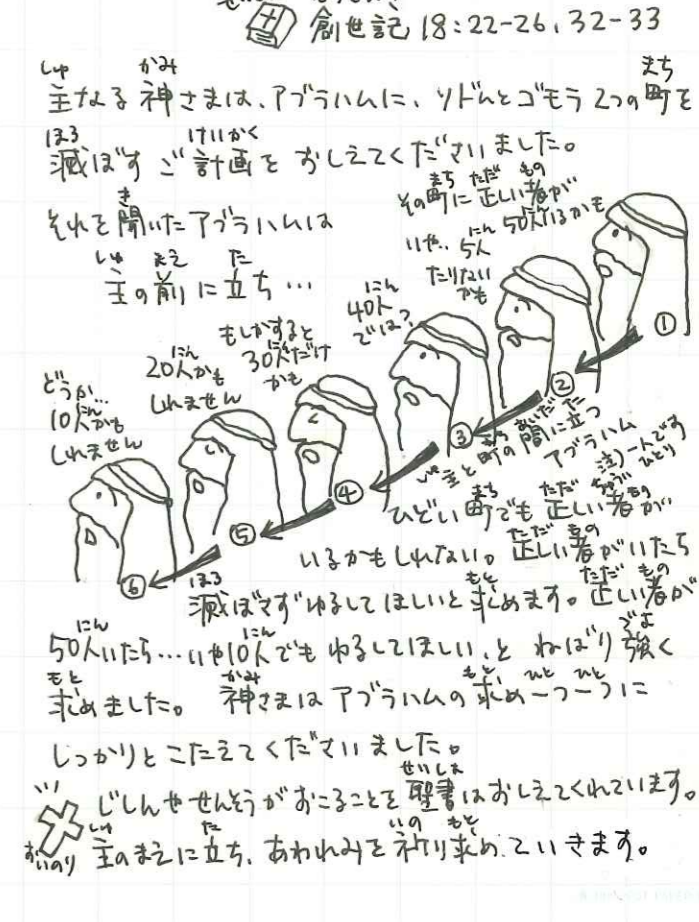 創世記 18:22-26、32-33
主なる神さまは、アブラハムに、ソドムとゴモラ 2つの町を
滅ぼす ご計画を おしえてくださいました。
それを聞いたアブラハムは
主の前に立ち…
その町に正しい者が
50人いるかも
①
いや‥ 5人
たりない
かも
②
40人
では?
③
もしかすると
30人だけ
かも
④
20人かも
しれません
⑤
どうか…
10人かも
しれません
⑥
主と町の間に立つ
アブラハム
注)一人です
ひどい町でも 正しい者が
いるかもしれない。正しい者がいたら
滅ぼさずゆるしてほしいと求めます。正しい者が
50人いたら…いや10人でもゆるしてほしい、と ねばり強く
求めました。 神さまはアブラハムの求め一つ一つに
しっかりとこたえてくださいました。
じしんやせんそうがおこることを聖書はおしえてくれています。
おいのり
主のまえに立ち、あわれみを祈り求め、ていきます。